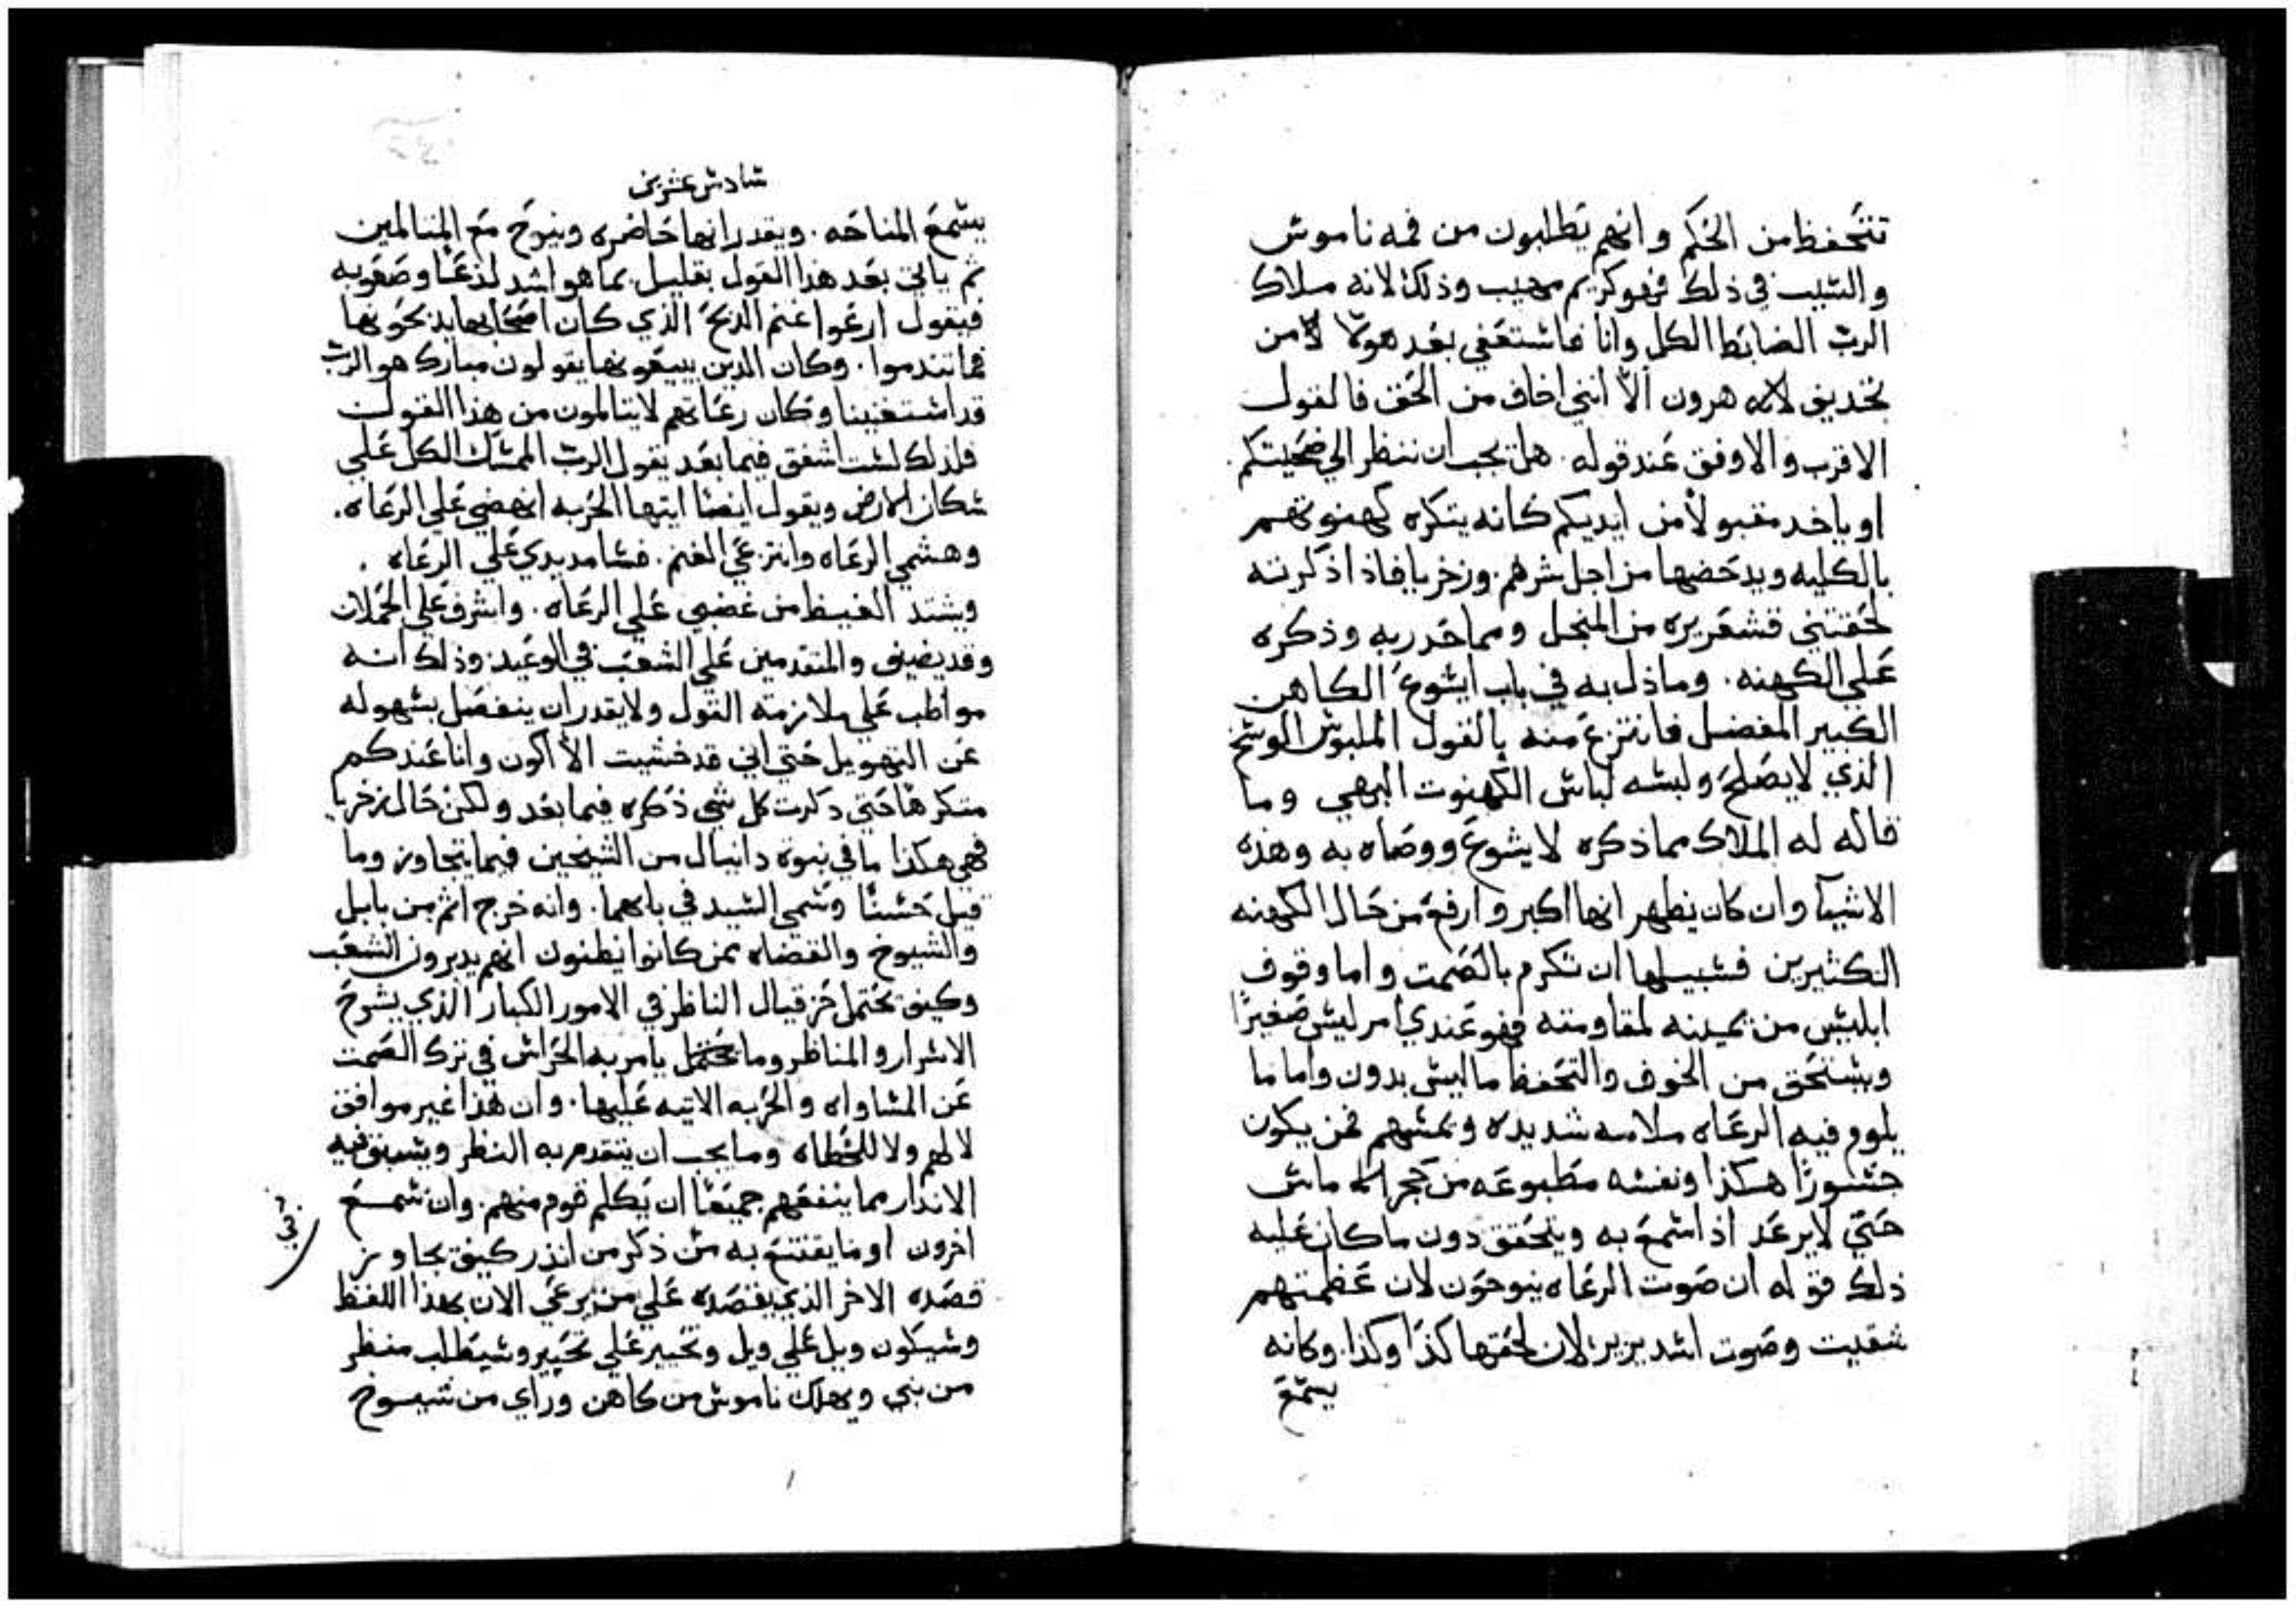 تتحفظ من الحكم وانهم يطلبون من فمه ناموس
والسبب في ذلك فهو كريم مهيب وذلك لانه ملاك
الرب الضابط الكل وانا فاستعفي بعد هولا لا من
تجديف لاله هرون الا انني اخاف من الحق فالقول
الاقرب والاوفق عند قوله. هل يجب ان ننظر الي ضحيتكم
او ياخد مقبولاً من ايديكم كانه يتكره كهنوتهم
بالكليه ويدحضها من اجل شرهم. وزخريا فاذا ذكرته
لحقتني قشعريره من المنجل ومما حدر به وذكره
علي الكهنه. وما ذل به في باب ايشوع الكاهن
الكبير المفضل فانتزع منه بالقول الملبوش الوشخ
الذي لا يصلح ولبشه لباش الكهنوت البهي وما
قاله له الملاك مما ذكره لايشوع ووصاه به وهذه
الاشيآ وان كان يظهر انها اكبر وارفع من حال الكهنه
الكثيرين فشبيلها ان تكرم بالصمت واما وقوف
ابليش من يمينه لمقاومته فهو عندي امر ليش صغيراً
ويشتحق من الخوف والتحفظ ما ليش بدون واما ما
يلوم فيه الرعاه ملامه شديده ويمشهم فمن يكون
جشوراً هكذا ونفشه مطبوعه من حجر الماش
حتي لا يرعد اذا شمع به ويتحقق دون ما كان عليه
ذلك قوله ان صوت الرعاه ينوحون لان عظمتهم
شقيت وصوت اشد يزير لان لحقها كذا وكذا. وكانه
يشمع
شادش عشرين
يشمع المناحه. ويقدر انها حاضره وينوح مع المتالمين
ثم ياتي بعد هذا القول بقليل بما هو اشد لذعاً وصعوبه
فيقول ارعوا غنم الدبح الذي كان اصحابها يذبحونها
فما تندموا. وكان الدين يبيعونها يقولون مبارك هو الرب
قد اشتغنينا وكان رعاتهم لا يتالمون من هذا القول
فلذلك لشت اشفق فيما بعد يقول الرب الممشك الكل علي
شكان الارض ويقول ايضا ايتها الحربه انهضي علي الرعاه.
وهشمي الرعاه وانتزعي الغنم. فشامد يدي علي الرعاه.
ويشتد الغيظ من غضبي علي الرعاه. واشرف علي الحملان
وقد يضيف والمتقدمين علي الشعب في الوعيد وذلك انه
مواظب علي ملازمته القول ولا يقدر ان ينفصل بشهوله
عن التهويل حتي اني قد خشيت الا اكون وانا عندكم
متكرهاً حتي ذكرت كل شي ذكره فيما بعد ولكن حال زخريا
فهي هكذا ما في نبوة دانيال من الشيخين فيما يتجاوز وما
قيل حشناً وشمي الشيد في بابهما. وانه خرج اثم من بابل
والشيوخ والقضاه ممن كانوا يظنون انهم يدبرون الشعب
وكيف يحتمل حزقيال الناظر في الامور الكبار الذي يشرح
الاشرار والمناظر وما يحتمل يامر به الحراش في ترك الصمت
عن المشاواه والحربه الاتيه عليها. وان هذا غير موافق
لا لهم ولا للخطاه وما يجب ان يتقدم به النظر ويشبق فيه
الاندار مما ينفعهم جميعاً ان يكلم قوم منهم. وان شمع
اخرون او ما يقتنع به من ذكر من انذر كيف يجاوز
قصده الاخر الذي يقصده علي من يرعي الان بهذا اللفظ
وشيكون ويل علي ويل وتحيير علي تحيير وشيطلب منظر
من نبي ويهلك ناموش من كاهن وراي من شيوخ